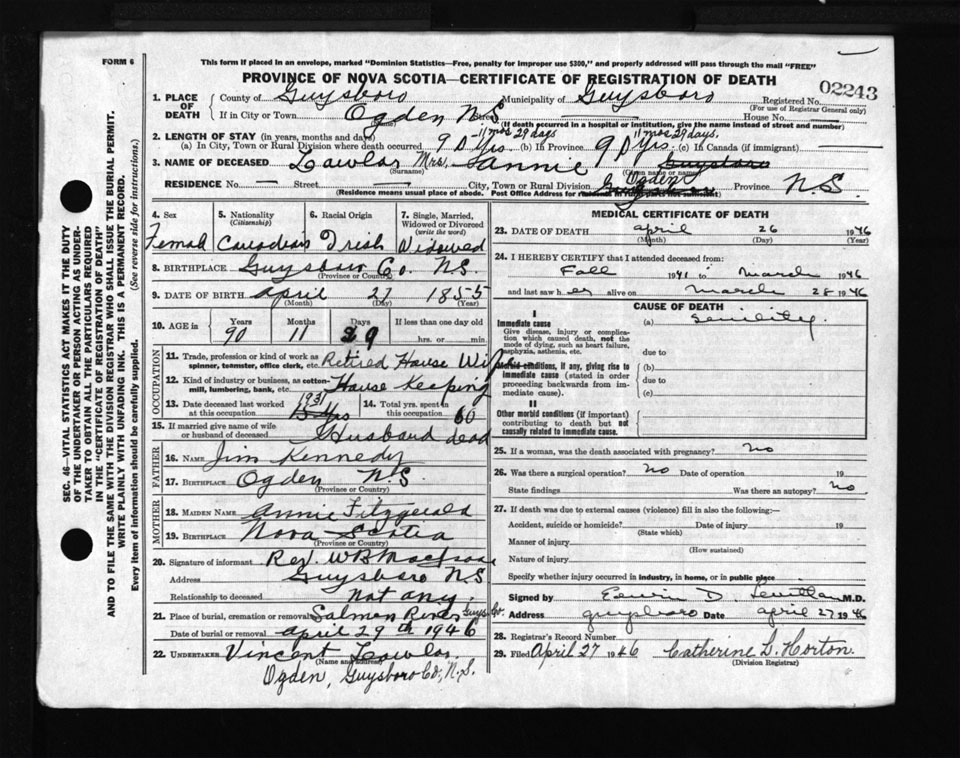 FORM 6
This form if placed in an envelope, marked "Dominion Statistics—Free, penalty for improper use $300," and properly addressed will pass through the mail "FREE"
PROVINCE OF NOVA SCOTIA—CERTIFICATE OF REGISTRATION OF DEATH
02243
1. PLACE OF DEATH County of Guysboro Municipality of Guysboro Registered No.
(For use of Registrar General only)
If in City or Town Ogden N S Street House No.
(If death occurred in a hospital or institution, give the name instead of street and number)
2. LENGTH OF STAY (in years, months and days) 11 mos 29 days 11 mos 29 days.
(a) In City, Town or Rural Division where death occurred 90 Yrs (b) In Province 90 Yrs. (c) In Canada (if immigrant)
3. NAME OF DECEASED Lawlor Mrs. Annie Guysboro
(Surname) (Given name or names)
RESIDENCE No. Street City, Town or Rural Division Ogden Guysboro Province N S
(Residence means usual place of abode. Post Office Address for residents in rural parts not sufficient)
4. Sex Female
5. Nationality (Citizenship) Canadian
6. Racial Origin Irish
7. Single, Married, Widowed or Divorced (write the word) Widowed
8. BIRTHPLACE Guysboro Co. N S.
(Province or Country)
9. DATE OF BIRTH April 27 1855
(Month) (Day) (Year)
10. AGE in Years 90 Months 11 Days 29 If less than one day old hrs. or min.
OCCUPATION
11. Trade, profession or kind of work as spinner, teamster, office clerk, etc. Retired House Wife
12. Kind of industry or business, as cotton-mill, lumbering, bank, etc. House Keeping
13. Date deceased last worked at this occupation 1931
14. Total yrs. spent in this occupation 60
15. If married give name of wife or husband of deceased Husband dead
FATHER
16. NAME Jim Kennedy
17. BIRTHPLACE Ogden N.S.
(Province or Country)
MOTHER
18. MAIDEN NAME Annie Fitzgerald
19. BIRTHPLACE Nova Scotia
(Province or Country)
20. Signature of informant Rev. W B
Address Guysboro N S
Relationship to deceased Not any
21. Place of burial, cremation or removal Salmon River Guys. Co.
Date of burial or removal April 29th 1946
22. UNDERTAKER Vincent Lawlor
(Name and address)
Ogden, Guysboro Co., N.S.
MEDICAL CERTIFICATE OF DEATH
23. DATE OF DEATH April 26 1946
(Month) (Day) (Year)
24. I HEREBY CERTIFY that I attended deceased from:
Fall 1941 to March 1946
and last saw her alive on March 28 1946
CAUSE OF DEATH
I
Immediate cause (a) Senility.
Give disease, injury or complication which caused death, not the mode of dying, such as heart failure, asphyxia, asthenia, etc.
due to
Morbid conditions, if any, giving rise to immediate cause (stated in order proceeding backwards from immediate cause). (b)
due to
(c)
II
Other morbid conditions (if important) contributing to death but not causally related to immediate cause.
25. If a woman, was the death associated with pregnancy? No
26. Was there a surgical operation? No Date of operation 19
State findings Was there an autopsy? No.
27. If death was due to external causes (violence) fill in also the following:—
Accident, suicide or homicide? Date of injury 19
(State which)
Manner of injury
(How sustained)
Nature of injury
Specify whether injury occurred in industry, in home, or in public place
Signed by Edwin D. M.D.
Address Guysboro Date April 27 1946
28. Registrar's Record Number
29. Filed April 27 1946 Catherine L. Horton.
(Division Registrar)
SEC. 46—VITAL STATISTICS ACT MAKES IT THE DUTY
OF THE UNDERTAKER OR PERSON ACTING AS UNDERTAKER TO OBTAIN ALL THE PARTICULARS REQUIRED
IN THE "CERTIFICATE OF REGISTRATION OF DEATH"
AND TO FILE THE SAME WITH THE DIVISION REGISTRAR WHO SHALL ISSUE THE BURIAL PERMIT.
WRITE PLAINLY WITH UNFADING INK. THIS IS A PERMANENT RECORD.
Every item of information should be carefully supplied. (See reverse side for instructions.)